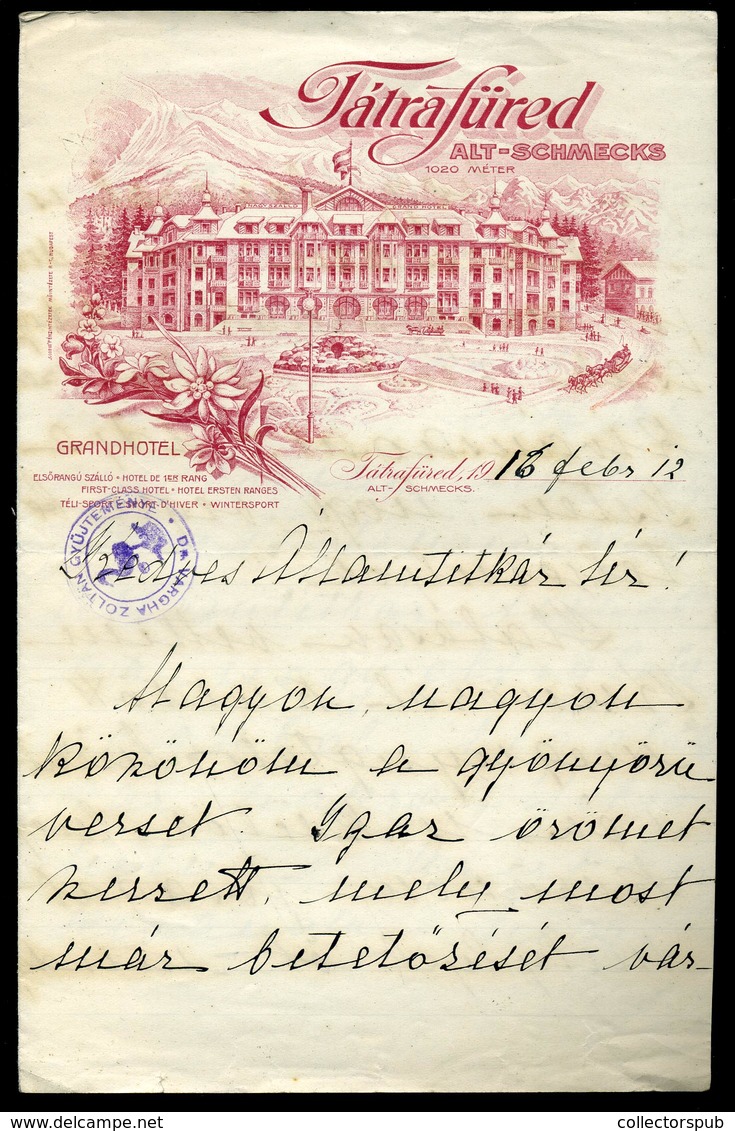 Tátrafüred
ALT-SCHMECKS
1020 MÉTER
NAGYSZÁLLÓ GRAND HOTEL
GRANDHOTEL
ELSŐRANGÚ SZÁLLÓ • HOTEL DE 1ER RANG
FIRST-CLASS HOTEL • HOTEL ERSTEN RANGES
TÉLI-SPORT • SPORT-D'HIVER • WINTERSPORT
Tátrafüred, 1916 febr 12
ALT-SCHMECKS.
DR. VARGHA ZOLTÁN GYŰJTEMÉNYE •
Kedves Államtitkár úr!
Nagyon, nagyon
köszönöm a gyönyörű
verset. Igaz örömet
szerzett, mely most
már betetőzését vár-
collectorspub